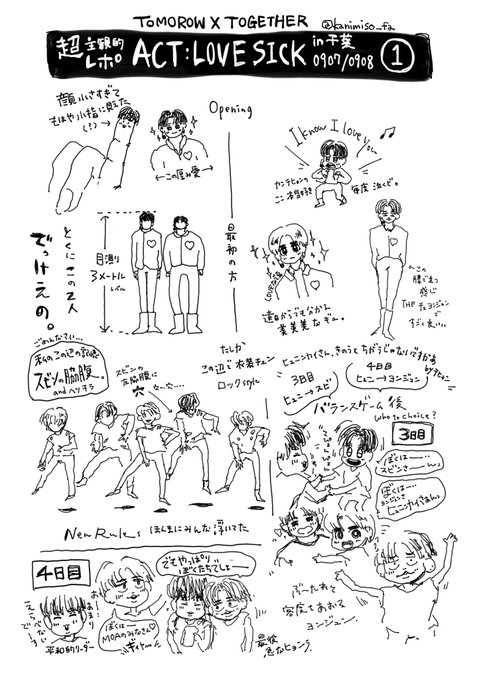 TOMOROW X TOGETHER
@kanimiso_fa
超主観的レポ ACT:LOVE SICK in 千葉 0907/0908 ①
Opening
顔小さすぎて
もはや小指に見えた
(?)→
←この厚み愛→
I know I love you ♪
カンテヒョンの
ここ本当好き
毎度泣くど。
最初の方
とくにこの2人
でっけえの。
目測り
3メートル
レベル
LOVESICK
遠目からでもわかる
←この
腰で立つ
感じ
THE チェヨンジュン
ですごく良い…
ごめんだてい…
私のこの辺の記憶
スビンの脇腹。
and ヘソチラ
スビンの
左脇腹に
穴
たしか
この辺で衣装チェン
ロックstyle
ヒュニンカイさん、きのうとちがうじゃのないですかぁ by ヒョン
3日目
ヒュニ→スビ
4日目
ヒュニ→ヨンジュン
バランスゲーム後
who to choice?
3日目
ぼくは…
スビンさーーん
ぼくは…
ヨンジュン
ヒュニンカイさぁん
New Rules ほんまにみんな浮いてた
4日目
でもやっぱり
ぼくたちでしょー
あまり
えらべない
平和的リーダー
ぼくは…
MOAのみなさん♡
ギャー
最後
ぶーたれて
客席をあおる
ヨンジュン